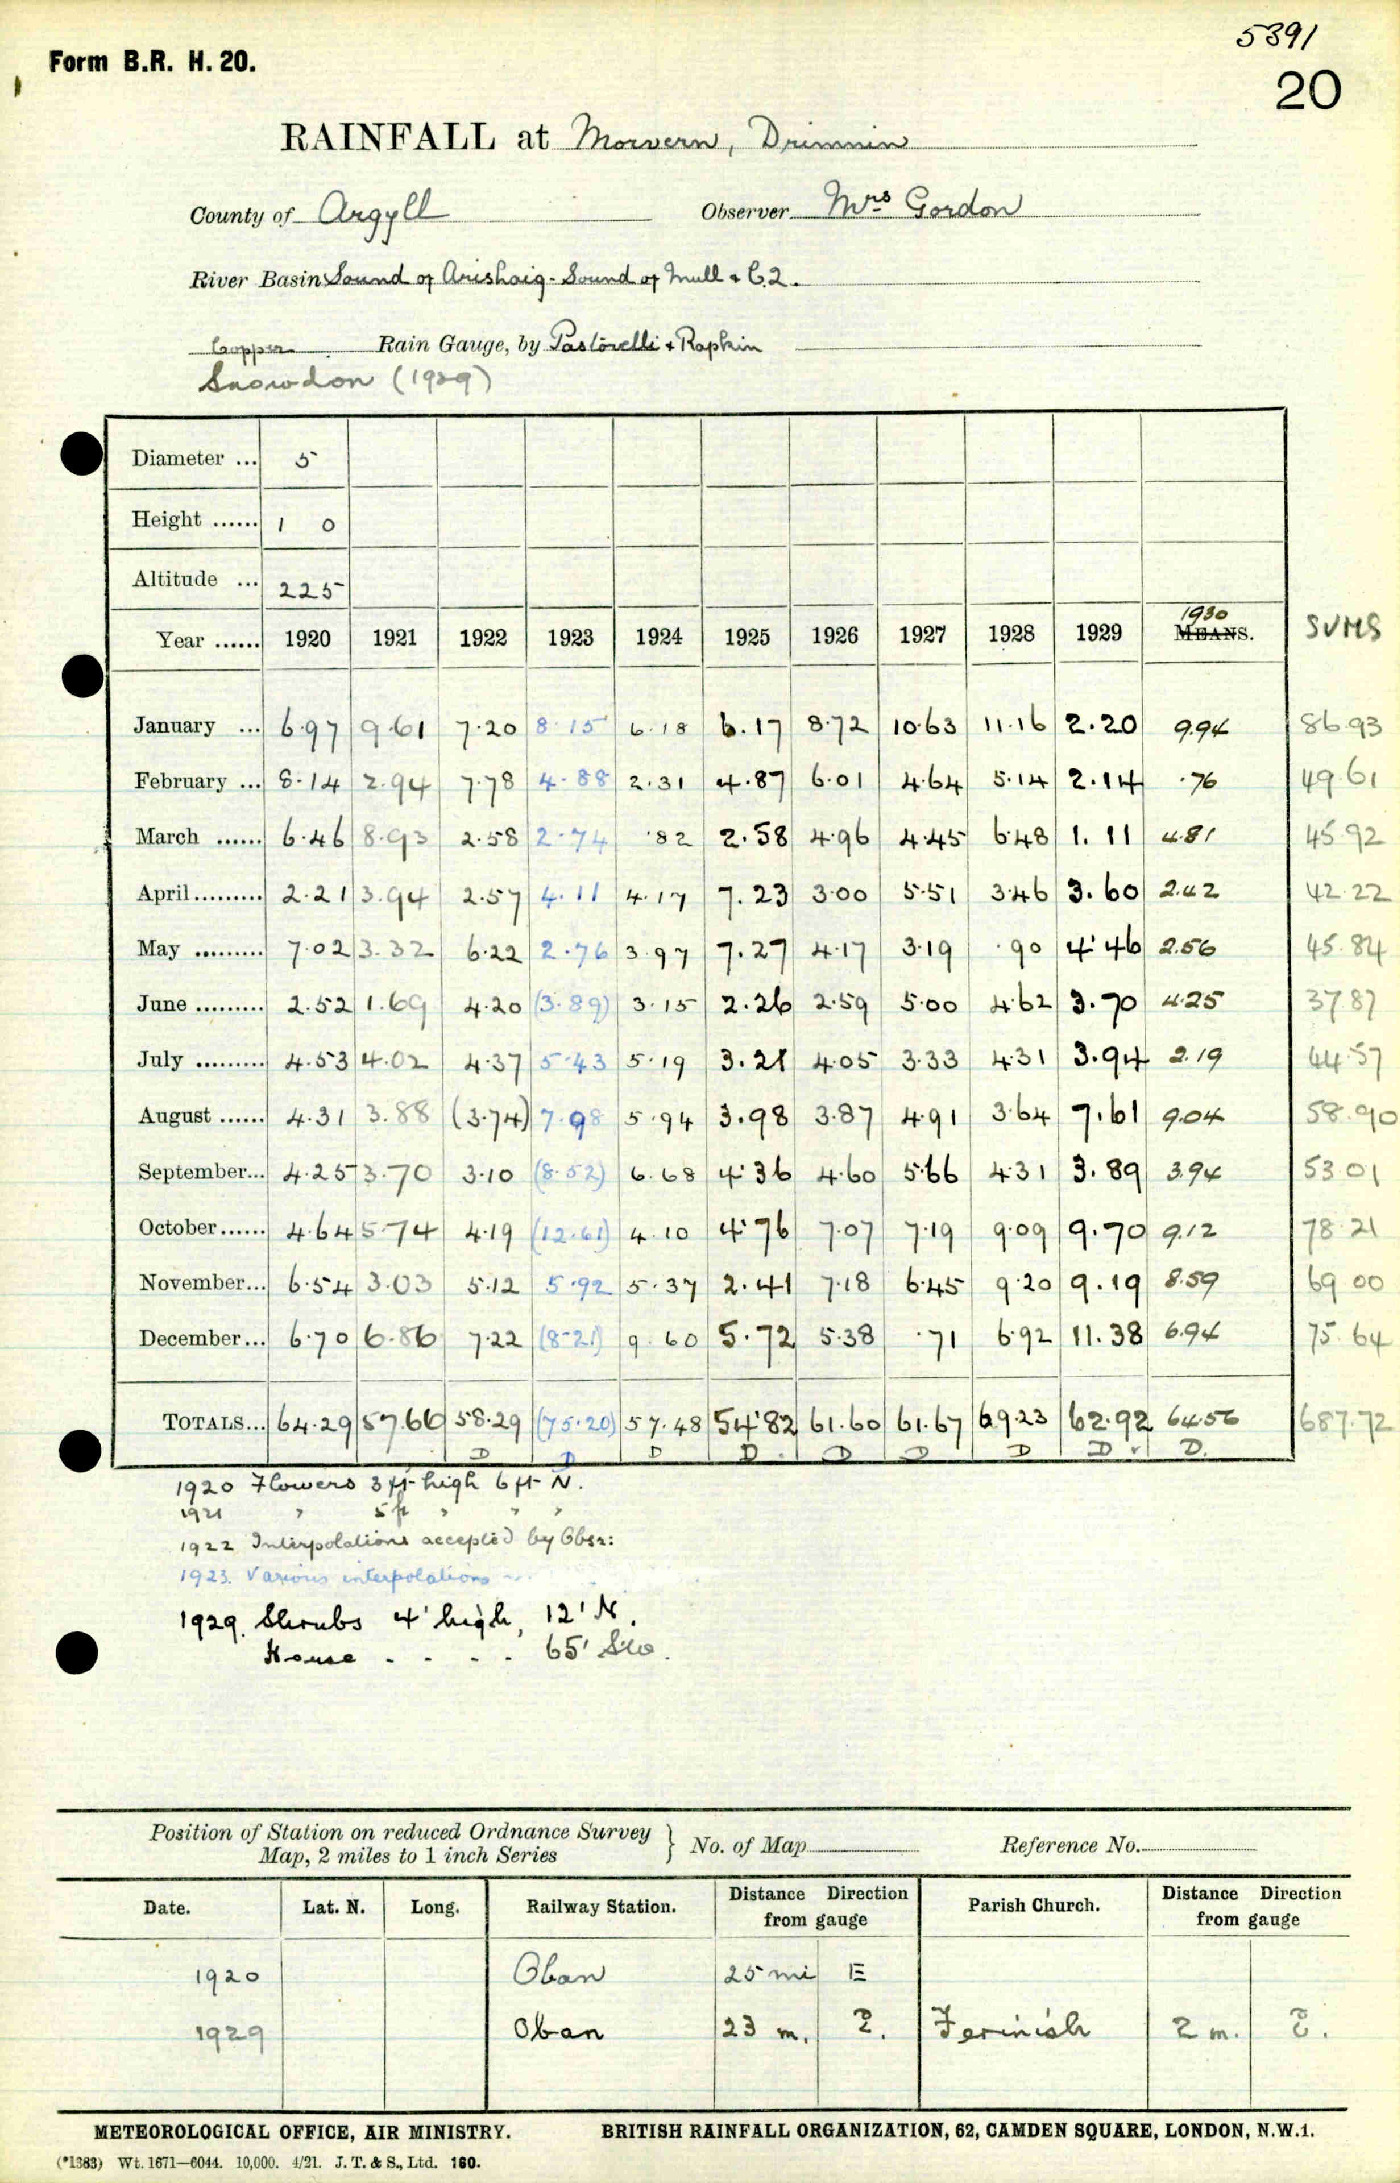 5391
Form B.R. H. 20.
20
RAINFALL at Morvern, Drimnin
County of Argyll Observer Mrs Gordon
River Basin Sound of Arishaig - Sound of Mull + C.2.
Copper Rain Gauge, by Pastorelli + Rapkin
Snowdon (1929)
Diameter ... 5
Height ...... 1 0
Altitude ... 225
Year ...... 1920 1921 1922 1923 1924 1925 1926 1927 1928 1929 1930 MEANS. SUMS
January ... 6.97 9.61 7.20 8.15 6.18 6.17 8.72 10.63 11.16 2.20 9.94 86.93
February ... 8.14 2.94 7.78 4.88 2.31 4.87 6.01 4.64 5.14 2.14 .76 49.61
March ...... 6.46 8.93 2.58 2.74 .82 2.58 4.96 4.45 6.48 1.11 4.81 45.92
April ......... 2.21 3.94 2.57 4.11 4.17 7.23 3.00 5.51 3.46 3.60 2.42 42.22
May ......... 7.02 3.32 6.22 2.76 3.97 7.27 4.17 3.19 .90 4.46 2.56 45.84
June ......... 2.52 1.69 4.20 (3.89) 3.15 2.26 2.59 5.00 4.62 3.70 4.25 37.87
July ......... 4.53 4.02 4.37 5.43 5.19 3.21 4.05 3.33 4.31 3.94 2.19 44.57
August ...... 4.31 3.88 (3.74) 7.98 5.94 3.98 3.87 4.91 3.64 7.61 9.04 58.90
September... 4.25 3.70 3.10 (8.52) 6.68 4.36 4.60 5.66 4.31 3.89 3.94 53.01
October...... 4.64 5.74 4.19 (12.61) 4.10 4.76 7.07 7.19 9.09 9.70 9.12 78.21
November... 6.54 3.03 5.12 5.92 5.37 2.41 7.18 6.45 9.20 9.19 8.59 69.00
December... 6.70 6.86 7.22 (8.21) 9.60 5.72 5.38 .71 6.92 11.38 6.94 75.64
TOTALS... 64.29 57.66 58.29 (75.20) 57.48 54.82 61.60 61.67 69.23 62.92 64.56 687.72
D D D D D D D D D.
1920 Flowers 3 ft high 6 ft N.
1921 " 5 ft " " "
1922 Interpolations accepted by Obsr:
1923. Various interpolations
1929. Shrubs 4' high, 12' N.
House - - - - 65' SW.
Position of Station on reduced Ordnance Survey
Map, 2 miles to 1 inch Series } No. of Map Reference No.
Date. Lat. N. Long. Railway Station. Distance Direction from gauge Parish Church. Distance Direction from gauge
1920 Oban 25 mi E
1929 Oban 23 m. E. Ferinish 2 m. E.
METEOROLOGICAL OFFICE, AIR MINISTRY. BRITISH RAINFALL ORGANIZATION, 62, CAMDEN SQUARE, LONDON, N.W.1.
(*1383) Wt. 1671—6044. 10,000. 4/21. J. T. & S., Ltd. 160.